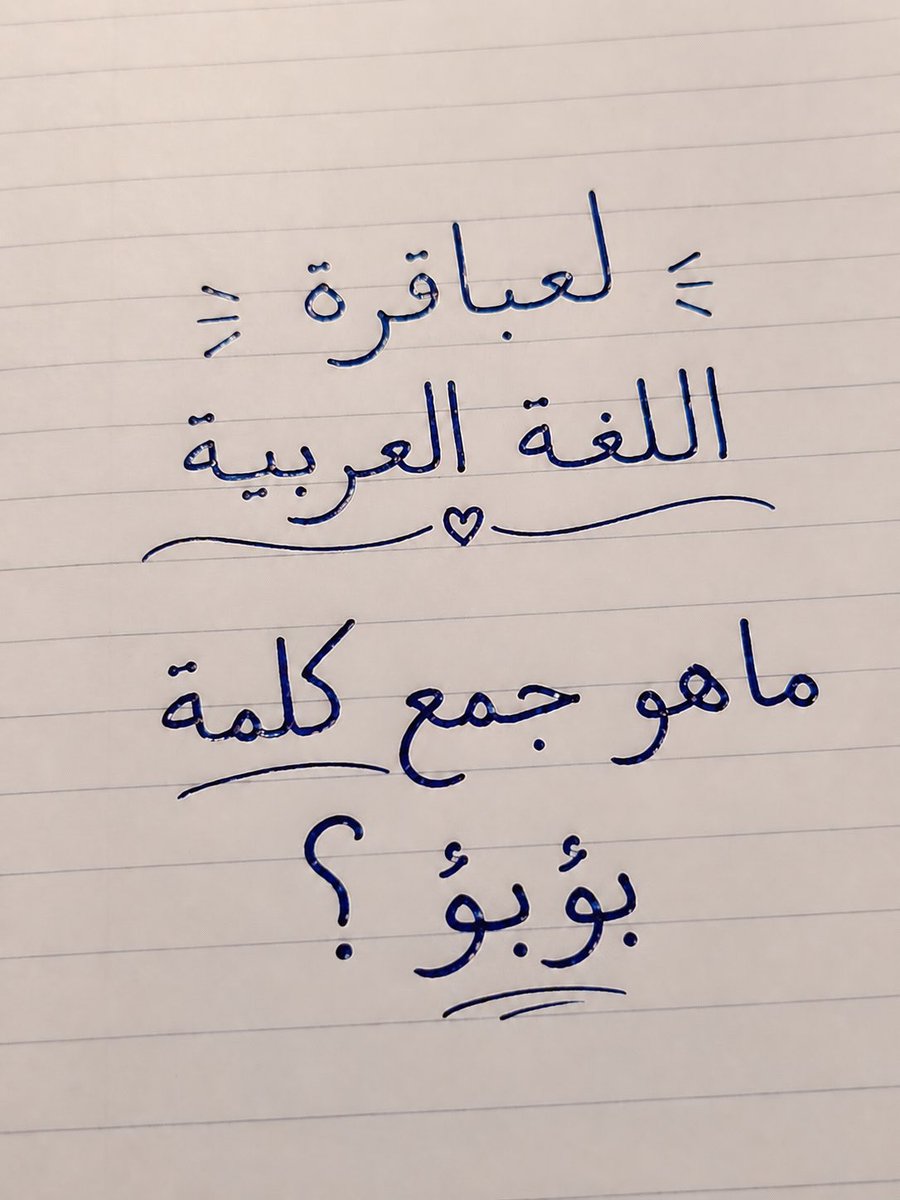 لعباقرة
اللغة العربية
ماهو جمع كلمة
بؤبؤ ؟